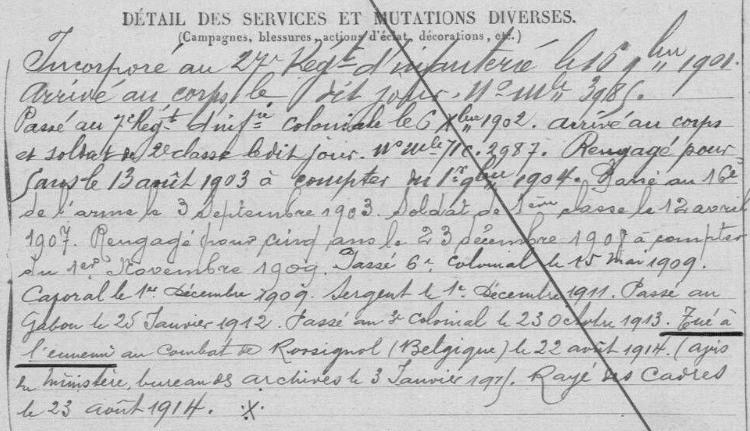 DÉTAIL DES SERVICES ET MUTATIONS DIVERSES.
(Campagnes, blessures, actions d'éclat, décorations, etc.)
Incorporé au 27e Régt d'infanterie le 16 9bre 1901.
Arrivé au corps le dit jour. No Mle 3985.
Passé au 7e Régt d'infrie coloniale le 6 Xbre 1902. arrivé au corps
et soldat de 2e classe le dit jour. No Mle 2987. Rengagé pour
5 ans le 13 août 1903 à compter du 1er 9bre 1904. Passé au 16e
de l'arme le 3 Septembre 1903. Soldat de 1ère classe le 12 avril
1907. Rengagé pour cinq ans le 23 décembre 1908 à compter
du 1er Novembre 1909. Passé 6e colonial le 15 mai 1909.
Caporal le 1er Décembre 1909. Sergent le 1er Décembre 1911. Passé au
Gabon le 25 Janvier 1912. Passé au 3e colonial le 23 Octobre 1913. Tué à
l'ennemi au combat de Rossignol (Belgique) le 22 août 1914. (avis
du ministère, bureau des archives le 3 Janvier 1915). Rayé des cadres
le 23 août 1914.